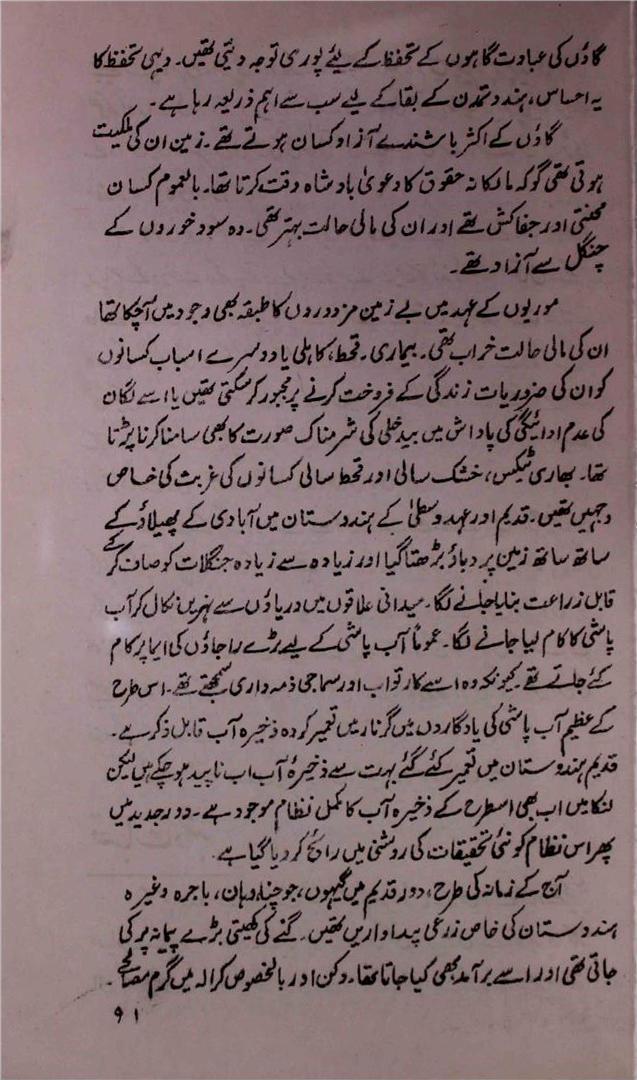 گاؤں کی عبادت گاہوں کے تحفظ کے لیئے پوری توجہ دیتی تھیں۔ دیہی تحفظ کا
یہ احساس، ہندو تمدن کے بقا کے لیے سب سے اہم ذریعہ رہا ہے۔
گاؤں کے اکثر باشندے آزاد کسان ہوتے تھے۔ زمین ان کی ملکیت
ہوتی تھی گو کہ مالکانہ حقوق کا دعویٰ بادشاہ وقت کرتا تھا۔ بالعموم کسان
محنتی اور جفاکش تھے اور ان کی مالی حالت بہتر تھی۔ وہ سود خوروں کے
چنگل سے آزاد تھے۔
موریوں کے عہد میں بے زمین مزدوروں کا طبقہ بھی وجود میں آچکا تھا
ان کی مالی حالت خراب تھی۔ بیماری۔ قحط، کاہلی یا دوسرے اسباب کسانوں
کو ان کی ضروریات زندگی کے فروخت کرنے پر مجبور کرسکتی تھیں یا اسے لگان
کی عدم ادائیگی کی پاداش میں بیدخلی کی شرمناک صورت کا بھی سامنا کرنا پڑتا
تھا۔ بھاری ٹیکس، خشک سالی اور قحط سالی کسانوں کی غربت کی خاص
وجہیں تھیں۔ قدیم اور عہد وسطیٰ کے ہندوستان میں آبادی کے پھیلاؤ کے
ساتھ ساتھ زمین پر دباؤ بڑھتا گیا اور زیادہ سے زیادہ جنگلات کو صاف کرکے
قابل زراعت بنایا جانے لگا۔ میدانی علاقوں میں دریاؤں سے نہریں نکال کر آب
پاشی کا کام لیا جانے لگا۔ عموماً آب پاشی کے لیے بڑے راجاؤں کی ایما پر کام
کئے جاتے تھے۔ کیونکہ وہ اسے کار ثواب اور سماجی ذمہ داری سمجھتے تھے۔ اس طرح
کے عظیم آب پاشی کی یادگاروں میں گرنار میں تعمیر کردہ ذخیرہ آب قابل ذکر ہے۔
قدیم ہندوستان میں تعمیر کئے گئے بہت سے ذخیرۂ آب اب ناپید ہوچکے ہیں لیکن
لنکا میں اب بھی اسطرح کے ذخیرہ آب کا مکمل نظام موجود ہے۔ دور جدید میں
پھر اس نظام کو نئی تحقیقات کی روشنی میں رائج کردیا گیا ہے۔
آج کے زمانہ کی طرح، دور قدیم میں گیہوں، جو چنا، دہان، باجرہ وغیرہ
ہندوستان کی خاص زرعی پیداواریں تھیں۔ گنے کی کھیتی بڑے پیمانہ پر کی
جاتی تھی اور اسے برآمد بھی کیا جاتا تھا۔ دکن اور بالخصوص کرالہ میں گرم مصالحے۔
۹۱